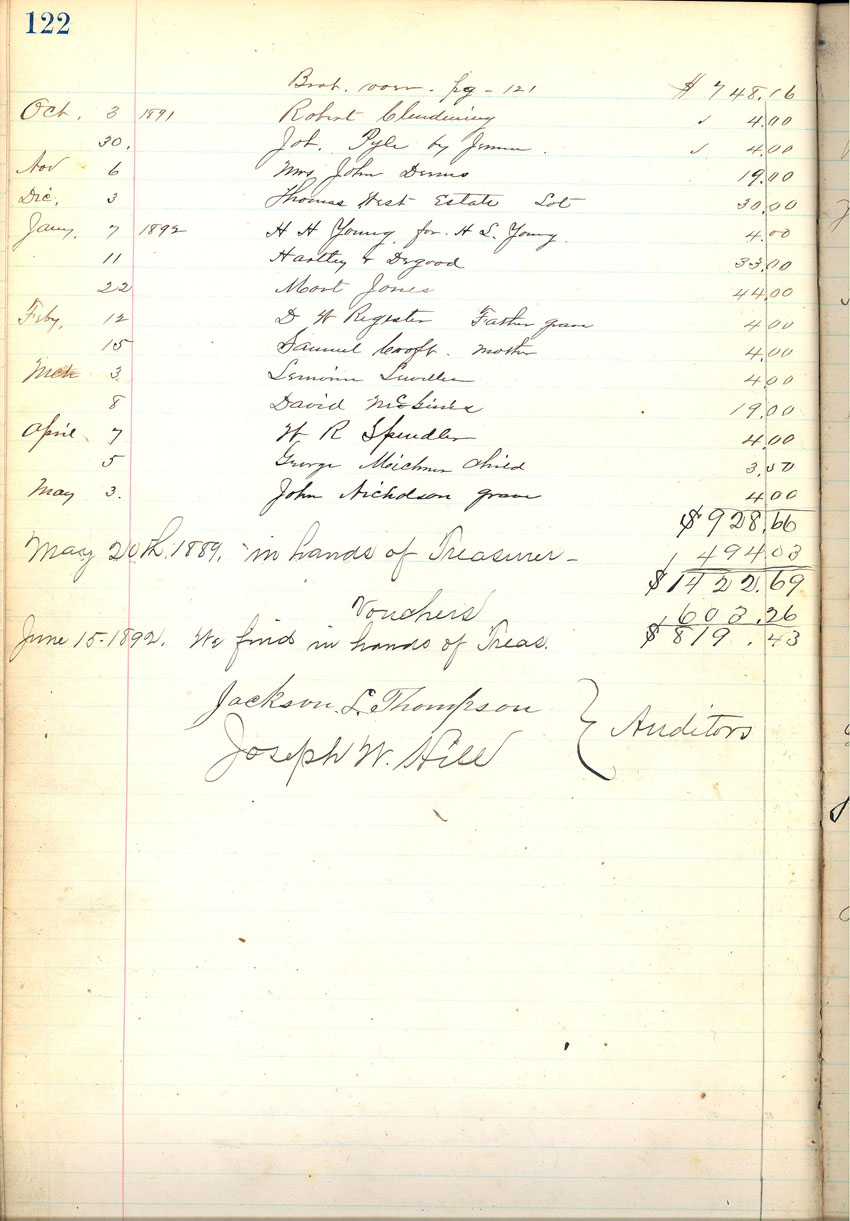 122
Brot. over. pg - 121 $ 748.16
Oct. 3 1891 Robert Clendining ✓ 4.00
30. Job. Pyle by ✓ 4.00
Nov 6 Mrs John Dennis 19.00
Dec. 3 Thomas West Estate Lot 30.00
Jany. 7 1892 H H Young for H L. Young. 4.00
11 Hartley & Osgood 33.00
22 Mort Jones 44.00
Feby. 12 D W Register Father grave 4.00
15 Samuel Croft. Mother 4.00
Mch 3 4.00
8 David McGinis 19.00
April 7 W R Spendler 4.00
5 George Meichner Child 3.50
May 3. John Nicholson grave 4.00
$ 928.66
May 20th. 1889. in hands of Treasurer - 494.03
$ 1422.69
Vouchers 603.26
June 15-1892. We find in hands of Treas. $ 819.43
Jackson. L. Thompson } Auditors
Joseph W. Hill